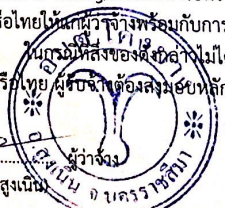 รือไทยให้แก่ผู้ว่าจ้างพร้อมกับการ
ในกรณีที่สิ่งของดังกล่าวไม่ได้
รือไทย ผู้รับจ้างต้องส่งมอบหลัก
ผู้ว่าจ้าง
สูงเนิน)
อ.สูงเนิน จ.นครราชสีมา